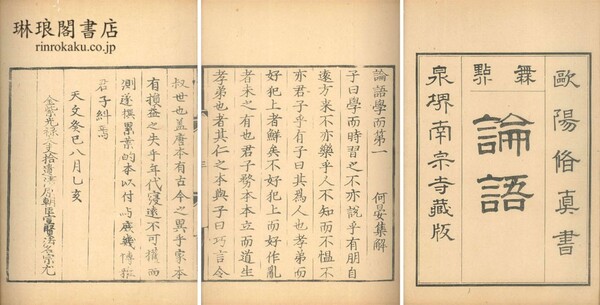 琳琅閣書店
rinrokaku.co.jp
歐陽脩真書
無點
論語
泉堺南宗寺藏版
論語學而第一　何晏集解
子曰學而時習之不亦說乎有朋自
遠方來不亦樂乎人不知而不慍不
亦君子乎有子曰其爲人也孝弟而
好犯上者鮮矣不好犯上而好作亂
者未之有也君子務本本立而道生
孝弟也者其仁之本與子曰巧言令
叔世也盖唐本有古今之異乎家本
有損益之失乎年代寢遠不可獲而
測遂撰累葉的本以付与庶幾傳於
君子糾焉
天文癸巳八月乙亥
金紫光祿大夫拾遺清原朝臣宣賢法名宗尤